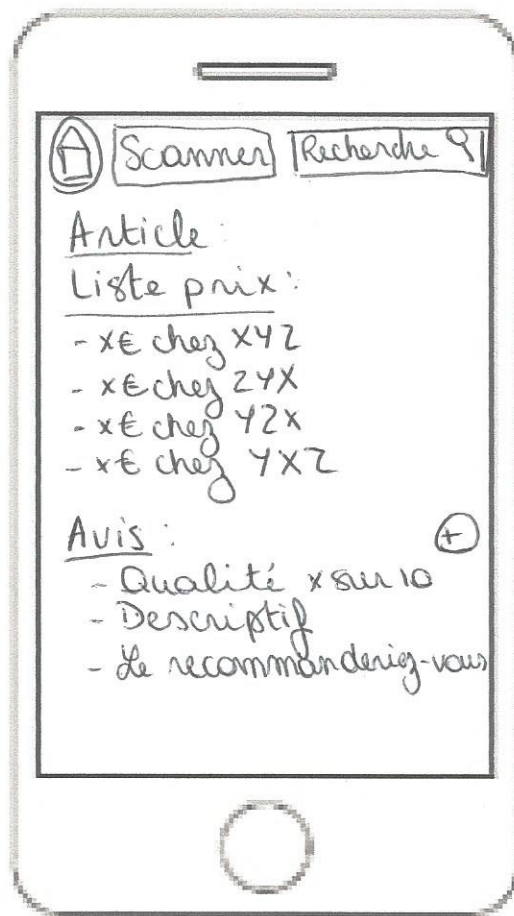 Scanner Recherche
Article :
Liste prix :
- x€ chez XYZ
- x€ chez ZYX
- x€ chez YZX
- x€ chez YXZ
Avis : +
- Qualité x sur 10
- Descriptif
- Le recommanderiez-vous